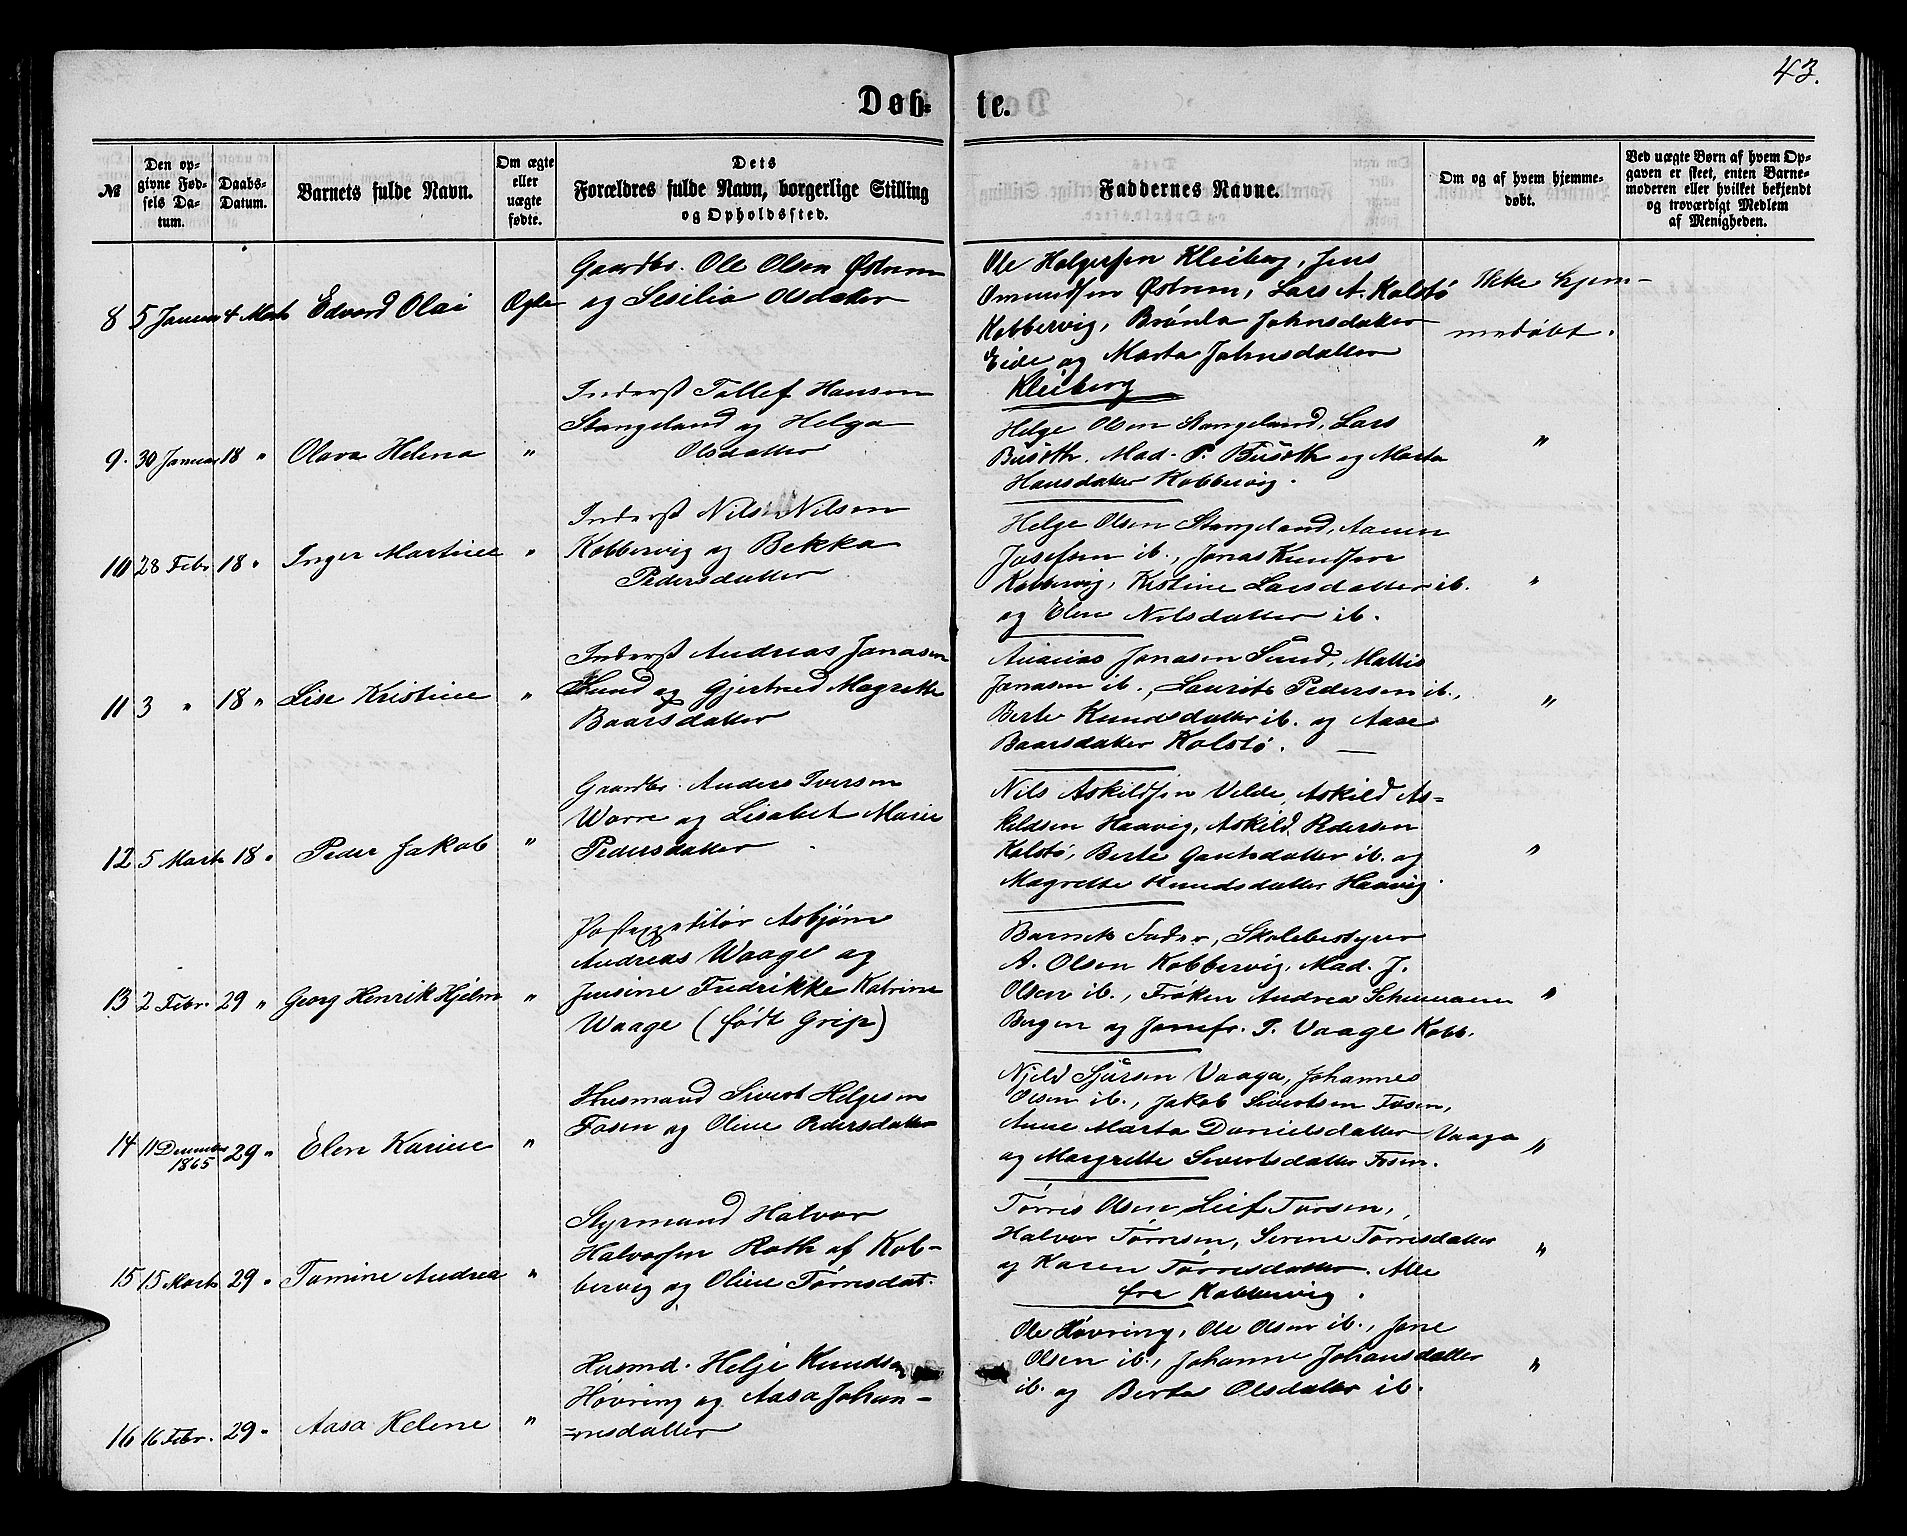 43.
Døb-te.
№
Den op-
givne Fød-
sels Da-
tum.
Daabs-
Datum.
Barnets fulde Navn.
Om ægte
eller
uægte
fødte.
Dets
Forældres fulde Navn, borgerlige Stilling
og Opholdssted.
Faddernes Navne.
Om og af hvem hjemme-
døbt.
Ved uægte Børn af hvem Op-
gaven er skeet, enten Barne-
moderen eller hvilket bekjendt
og troværdigt Medlem
af Menigheden.
8 5 Januar 4 Marts Edvard Olai Ægte
Gaardbr. Ole Olsen Østrem
og Sesilia Olsdatter
Ole Holgersen Kleiberg, Jens
Omundsen Østrem, Lars A. Kolstø
Kobbervig, Brønla Johnsdatter
Eide og Marta Johnsdatter
Kleiberg
Ikke hjem-
medøbt.
9. 30 Januar 18 " Olava Helena "
Inderst Tollef Hansen
Stangeland og Helga
Olsdatter
Helge Olsen Stangeland, Lars
Büsoth, Mad. P. Büsoth og Marta
Hansdatter Kobbervig.
"
10 28 Febr. 18 " Inger Martine "
Inderst Nils Nilsen
Kobbervig og Bekka
Pedersdatter
Helge Olsen Stangeland, Aamen
Josefsen ib., Jonas Knudsen
Kobbervig, Kistine Larsdatter ib.
og Elen Nilsdatter ib.
"
11 3 " 18 " Lise Kristine "
Inderst Andreas Jonasen
Sund og Gjertrud Magrethe
Baarsdatter
Ananias Jonasen Sund, Mattis
Jonasen ib., Laurits Pedersen ib.,
Berte Knudsdatter ib. og Aase
Baarsdatter Kolstø.
"
12 5 Marts 18 " Peder Jakob "
Gaardbr. Anders Iversen
Worre og Lisabet Marie
Pedersdatter
Nils Askildsen Velde, Askild As-
kildsen Haavig, Askild Pedersen
Kolstø, Berte Gautsdatter ib. og
Magrette Knudsdatter Haavig.
"
13 2 Febr. 29 " Georg Henrik Hjelm "
Postexpeditør Asbjørn
Andreas Waage og
Jensine Fredrikke Katrine
Waage (født Grip)
Barnets Fader, Skolebestyrer
A. Olsen Kobbervig, Mad. J.
Olsen ib., Frøken Andrea Schumann
Bergen og Jomfr. P. Vaage Kobb.
"
14 11 December
1865 29 " Elen Karine "
Husmand Sivert Helgesen
Fosen og Oline Pedersdatter
Njeld Sjursen Vaaga, Johannes
Olsen ib., Jakob Sivertsen Fosen,
Anne Marta Danielsdatter Vaaga
og Margrette Sivertsdatter Fosen.
"
15 15 Marts 29 " Tomine Andrea "
Styrmand Halvor
Halvorsen Roth af Kob-
bervig og Oline Tørresdat.
Tørres Olsen, Leif Torsen,
Halvor Tørresen, Serene Tørresdatter
og Karen Tørresdatter. Alle
fra Kobbervig.
"
16 16 Febr. 29 " Aasa Helene "
Husmd. Helje Knudsen
Høvring og Aasa Johan-
nesdatter
Ole Høvring, Ole Olsen ib., Jone
Olsen ib., Johanne Johansdatter
ib. og Berta Olsdatter ib.
"